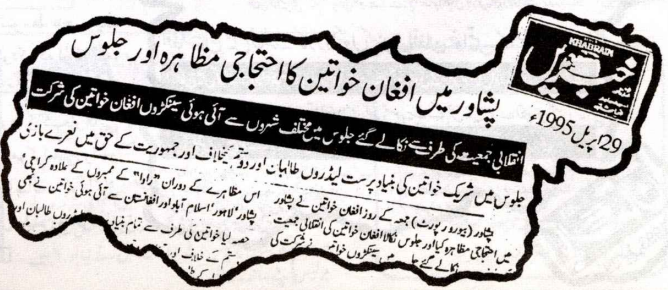 KHABRAIN
خبریں
29 اپریل 1995ء
پشاور میں افغان خواتین کا احتجاجی مظاہرہ اور جلوس
انقلابی جمعیت کی طرف سے نکالے گئے جلوس میں مختلف شہروں سے آئی ہوئی سینکڑوں افغان خواتین کی شرکت
جلوس میں شریک خواتین کی بنیاد پرست لیڈروں طالبان اور دوستم کیخلاف اور جمہوریت کے حق میں نعرے بازی
پشاور (بیورو رپورٹ) جمعہ کے روز افغان خواتین نے پشاور
میں احتجاجی مظاہرہ کیا اور جلوس نکالا افغان خواتین کی انقلابی جمعیت
نکالے گئے میں سینکڑوں نے شرکت کی
اس مظاہرے کے دوران "راوا" کے ممبروں کے علاوہ کراچی
پشاور لاہور اسلام آباد اور افغانستان سے آئی ہوئی خواتین نے بھی
حصہ لیا خواتین کی طرف سے تمام بنیاد طالبان اور
کے خلاف